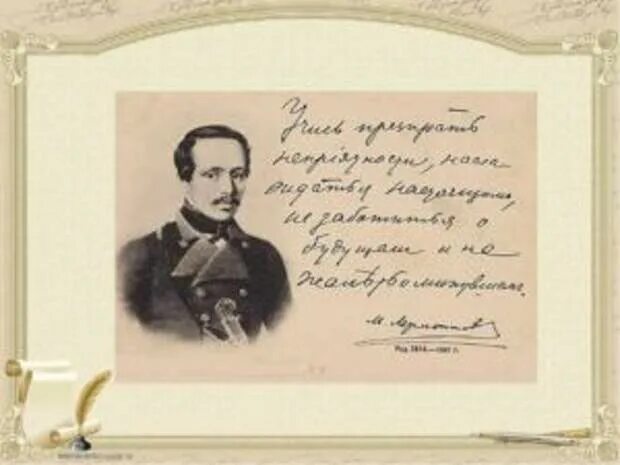 Учись презирать
непріязности, насла
ждаться настоящимъ,
не заботиться о
будущемъ и не
жалѣть о минувшемъ.
М. Лермонтовъ
Род. 1814.—1841 г.